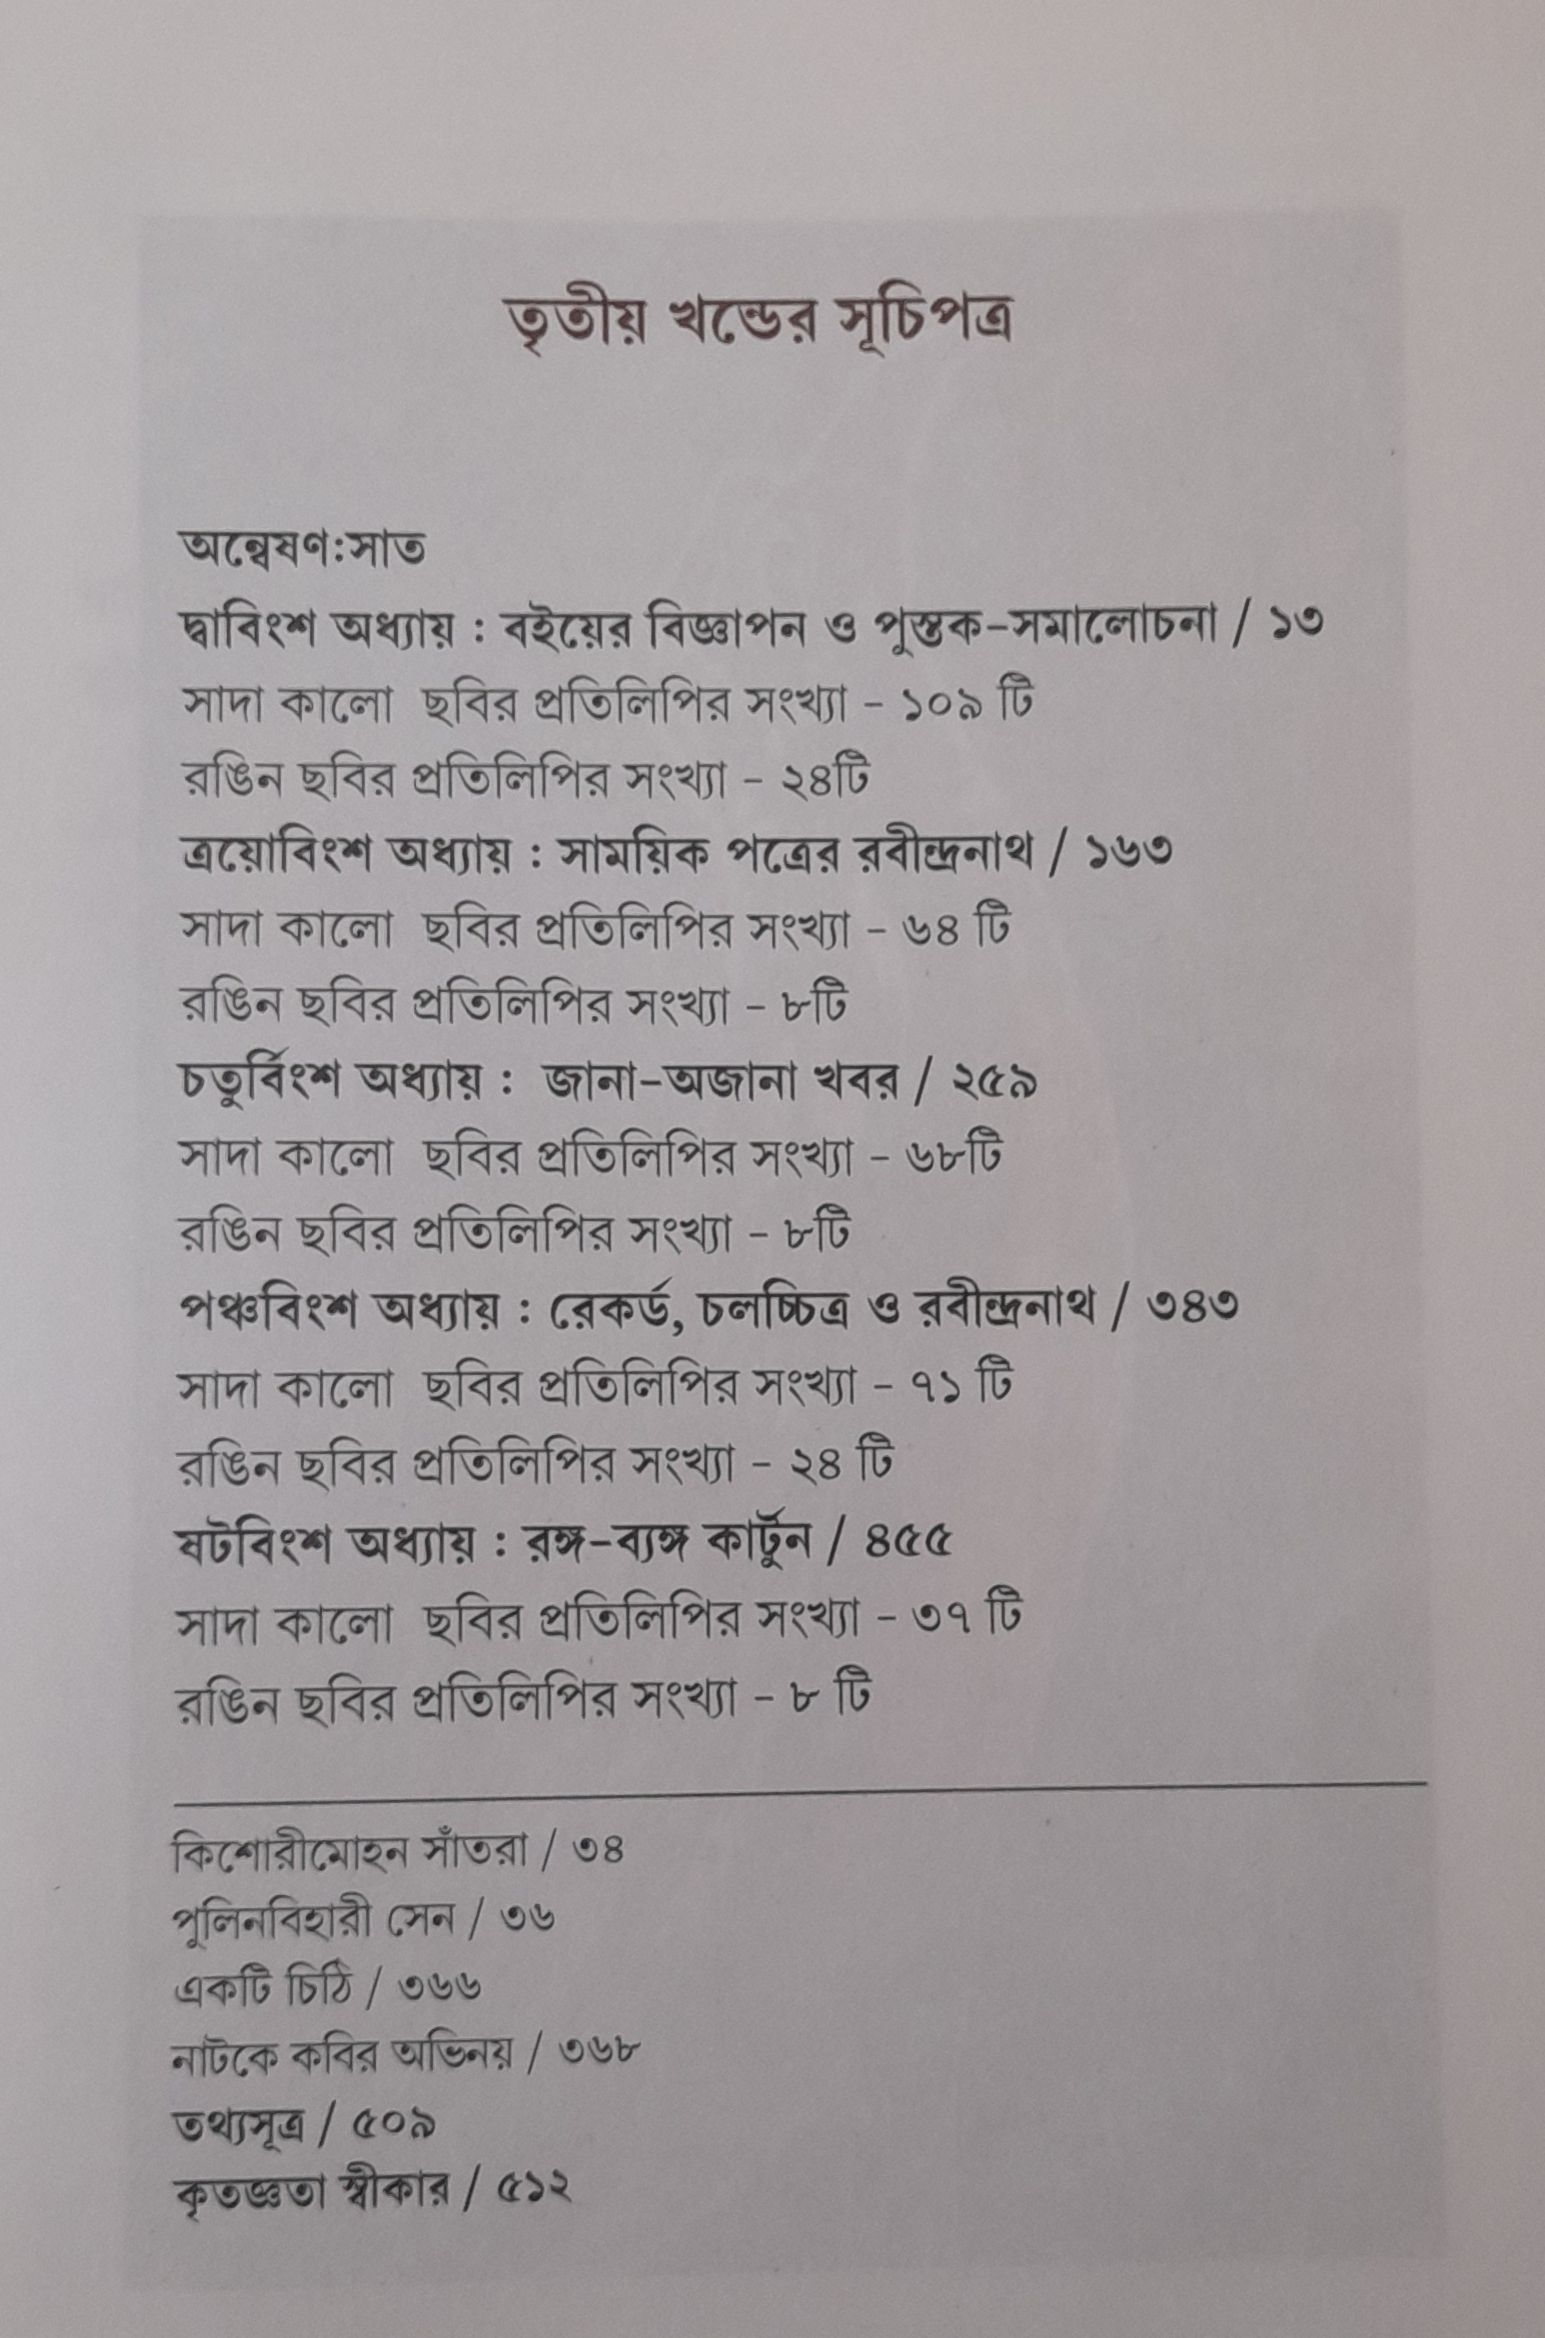 তৃতীয় খন্ডের সূচিপত্র
অন্বেষণ:সাত
দ্বাবিংশ অধ্যায় : বইয়ের বিজ্ঞাপন ও পুস্তক-সমালোচনা / ১৩
সাদা কালো ছবির প্রতিলিপির সংখ্যা - ১০৯ টি
রঙিন ছবির প্রতিলিপির সংখ্যা - ২৪টি
ত্রয়োবিংশ অধ্যায় : সাময়িক পত্রের রবীন্দ্রনাথ / ১৬৩
সাদা কালো ছবির প্রতিলিপির সংখ্যা - ৬৪ টি
রঙিন ছবির প্রতিলিপির সংখ্যা - ৮টি
চতুর্বিংশ অধ্যায় : জানা-অজানা খবর / ২৫৯
সাদা কালো ছবির প্রতিলিপির সংখ্যা - ৬৮টি
রঙিন ছবির প্রতিলিপির সংখ্যা - ৮টি
পঞ্চবিংশ অধ্যায় : রেকর্ড, চলচ্চিত্র ও রবীন্দ্রনাথ / ৩৪৩
সাদা কালো ছবির প্রতিলিপির সংখ্যা - ৭১ টি
রঙিন ছবির প্রতিলিপির সংখ্যা - ২৪ টি
ষটবিংশ অধ্যায় : রঙ্গ-ব্যঙ্গ কার্টুন / ৪৫৫
সাদা কালো ছবির প্রতিলিপির সংখ্যা - ৩৭ টি
রঙিন ছবির প্রতিলিপির সংখ্যা - ৮ টি
কিশোরীমোহন সাঁতরা / ৩৪
পুলিনবিহারী সেন / ৩৬
একটি চিঠি / ৩৬৬
নাটকে কবির অভিনয় / ৩৬৮
তথ্যসূত্র / ৫০৯
কৃতজ্ঞতা স্বীকার / ৫১২